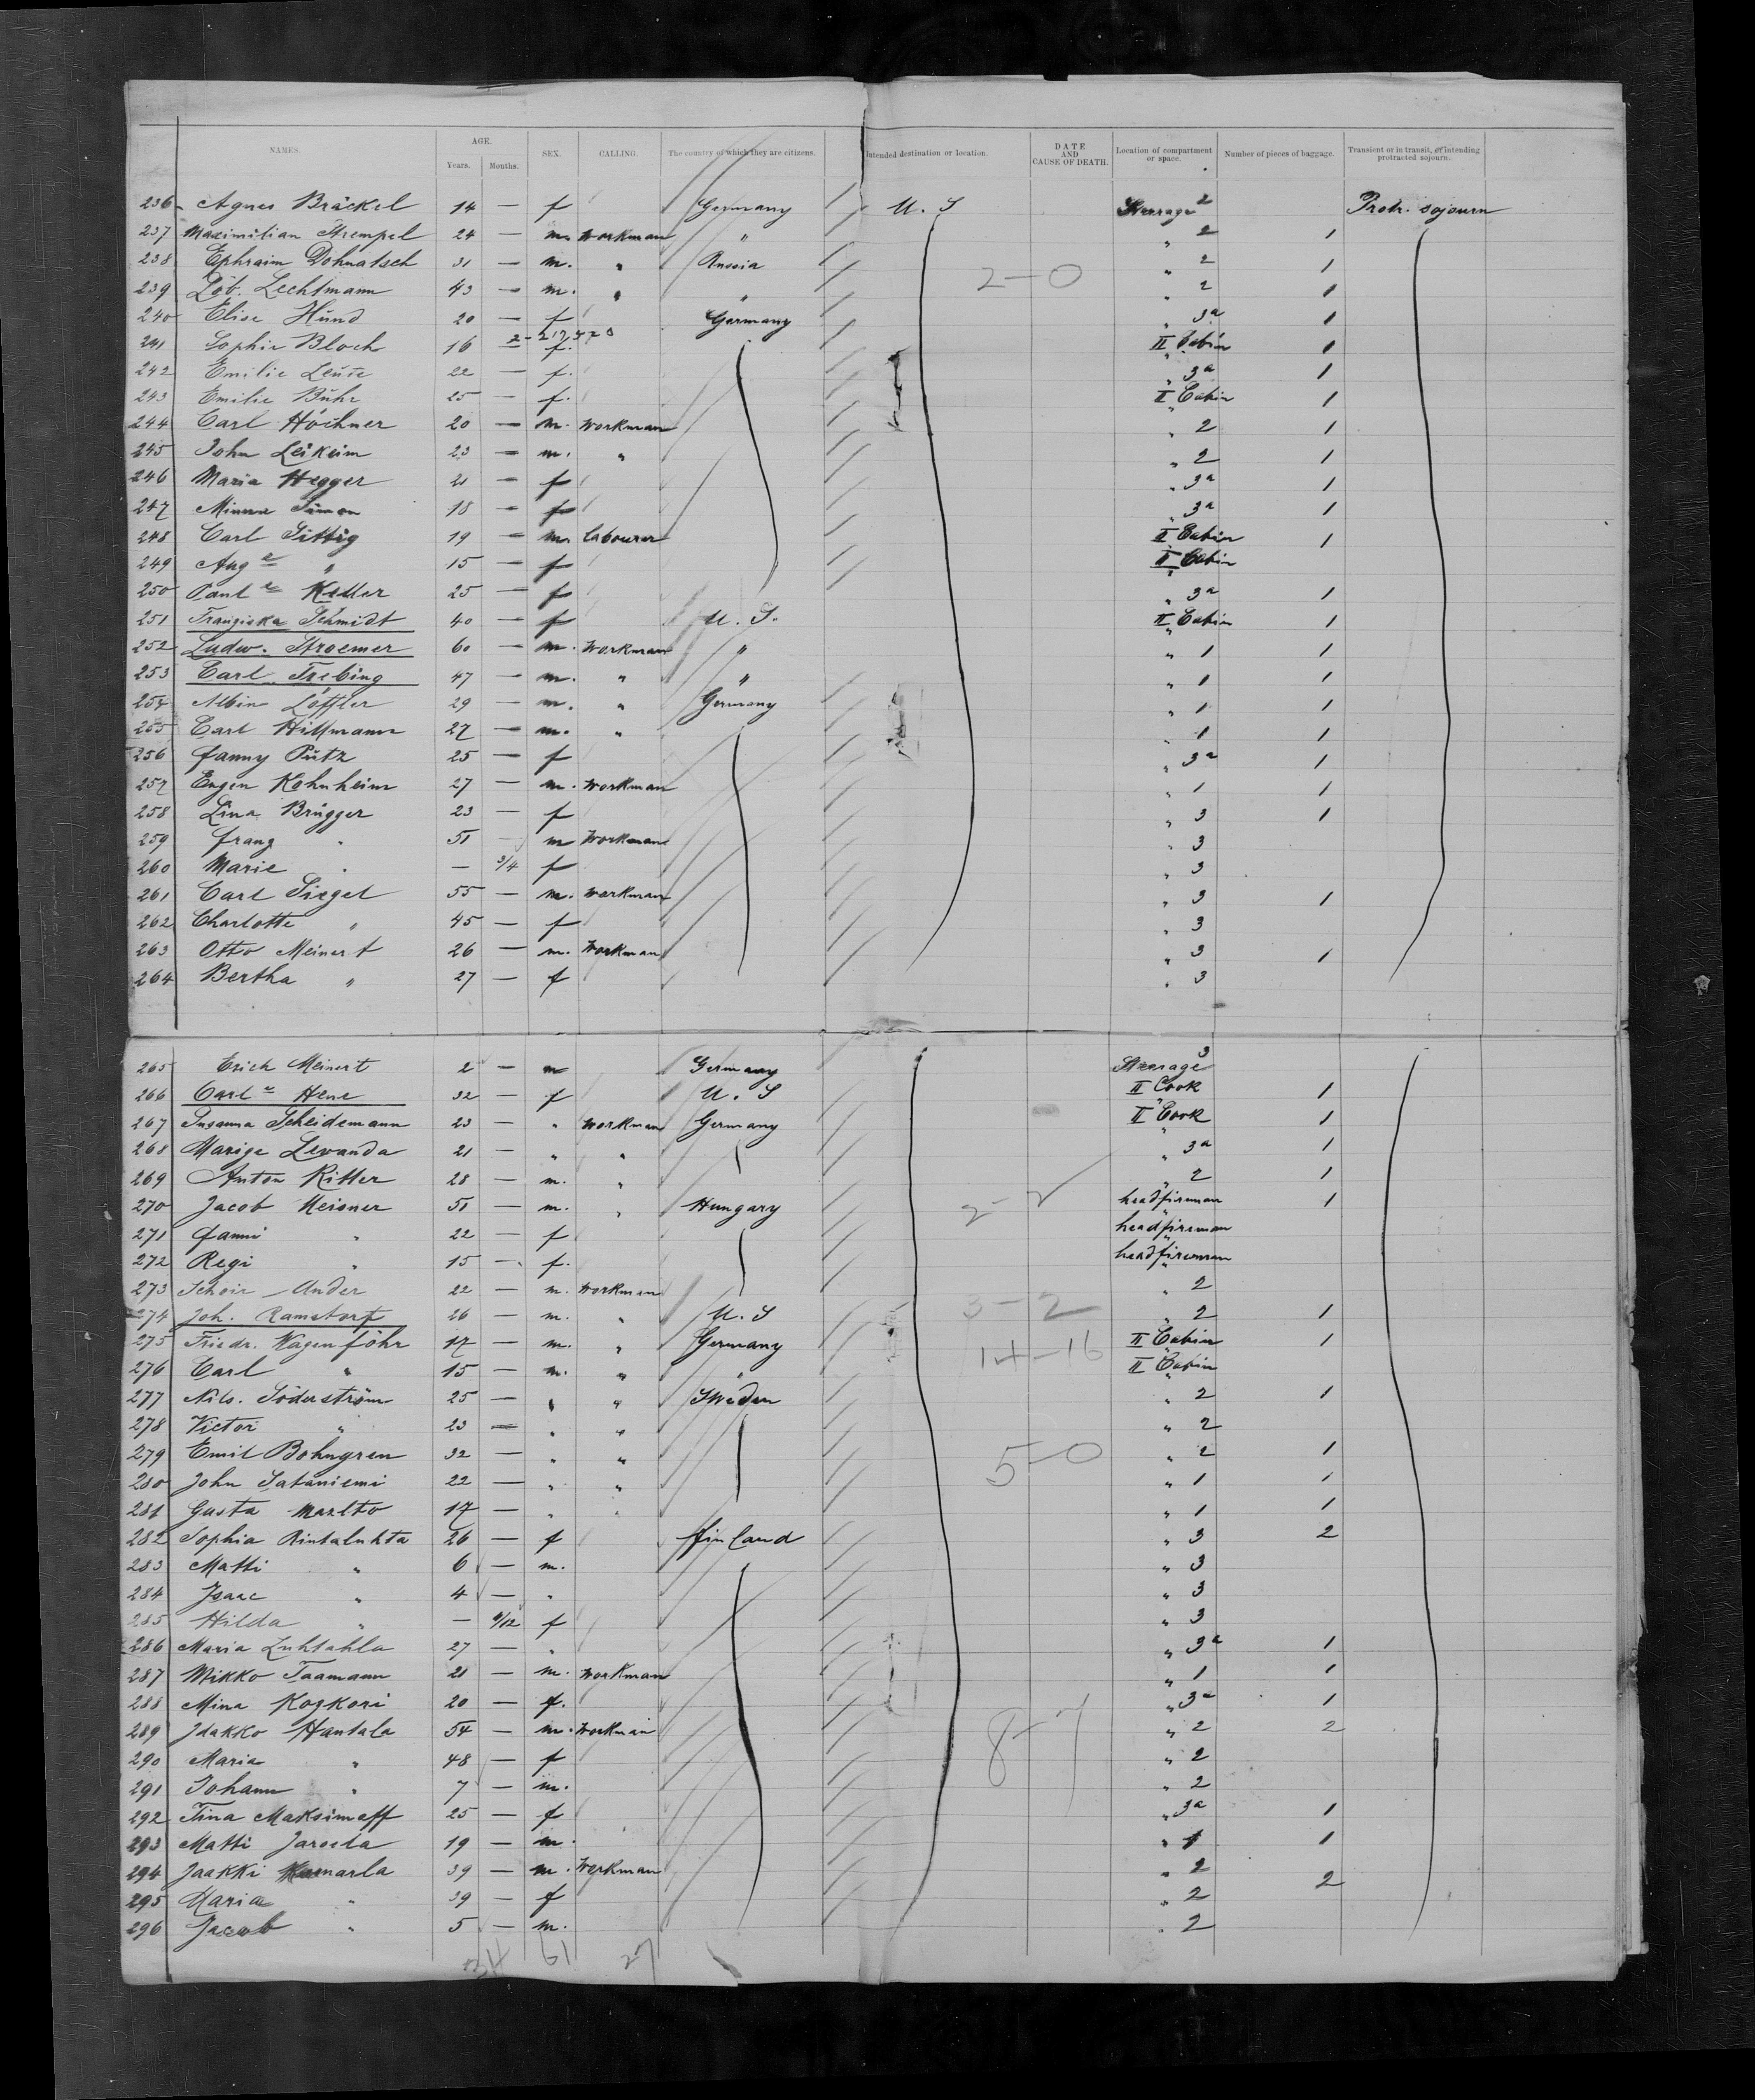 NAMES. AGE. Years. Months. SEX. CALLING. The country of which they are citizens. Intended destination or location. DATE AND CAUSE OF DEATH. Location of compartment or space. Number of pieces of baggage. Transient or in transit, or intending protracted sojourn.
236 Agnes Bräckel 14 — f Germany U. S Steerage 2 Protr. sojourn
237 Maximilian Strempel 24 — m. workman " " 2 1
238 Ephraim Dohnatsch 31 — m. " Russia " 2 1
239 Löb. Lechtmann 43 — m. " " " 2 1
2-0
240 Elise Hund 20 — f Germany " 3a 1
241 Sophie Bloch 16 — f. II Cabin 1
242 Emilie 22 — f. " 3a 1
243 Emilie Buhr 25 — f. II Cabin 1
244 Carl 20 — m. workman " 2 1
245 John Leikeim 23 — m. " " 2 1
246 Maria Hegger 21 — f " 3a 1
247 Minna Simon 18 — f " 3a 1
248 Carl Sittig 19 — m. labourer II Cabin 1
249 Aug e " 15 — f II Cabin
250 Paul e Keller 25 — f " 3a 1
251 Franziska Schmidt 40 — f U. S. II Cabin 1
252 Ludw. Stroemer 60 — m. workman " " 1 1
253 Carl Trebing 47 — m. " " " 1 1
254 Albin Löffler 29 — m. " Germany " 1 1
255 Carl Hillmann 27 — m. " " 1 1
256 Fanny Pütz 25 — f " 3a 1
257 Eugen Kohnheim 27 — m. workman " 1 1
258 Lina Brügger 23 — f " 3 1
259 Franz " 51 m workman " 3
260 Marie " — 3/4 f " 3
261 Carl Siegel 55 — m. workman " 3 1
262 Charlotte " 45 — f " 3
263 Otto Meinert 26 — m. workman " 3 1
264 Bertha " 27 — f " 3
265 Erich Meinert 2 — m Germany Steerage 3
266 Carl e Hene 32 — f U. S II Cook 1
267 Susanna Scheidemann 23 — " workman Germany II Cook 1
268 Levanda 21 — " " " 3a 1
269 Anton Ritter 28 — m. " " 2 1
270 Jacob Meisner 51 — m. " Hungary headfireman 1
271 Fanni " 22 — f headfireman
272 Regi " 15 — f. headfireman
273 Ander 22 — m. workman " 2
274 Joh. Ramstorf 26 — m. " U. S 3-2 " 2 1
275 Friedr. Wagenföhr 17 — m. " Germany 14-16 II Cabin 1
276 Carl " 15 — m. " II Cabin
277 Nils. Söderström 25 — " " Sweden " 2 1
278 Victor " 23 — " " " 2
279 Emil Bohngren 32 — " " 5-0 " 2 1
280 John Sataniemi 22 — " " " 1 1
281 Gusta Marlto 17 — " " " 1 1
282 Sophia Rintaluhta 26 — f Finland " 3 2
283 Matti " 6 — m. " 3
284 Isaac " 4 — " " 3
285 Hilda " — f " 3
286 Maria Luhtahla 27 — " " 3a 1
287 Mikko Taamann 21 — m. workman " 1 1
288 Mina Koskori 20 — f. " 3a 1
289 Jaakko Hantala 54 — m. workman " 2 2
290 Maria " 48 — f " 2
291 Johann " 7 — m. " 2
8-7
292 Tina Maksimoff 25 — f " 3a 1
293 Matti 19 — m. " 1 1
294 Jaakki 39 — m. workman " 2 2
295 Maria " 39 — f " 2
296 Jacob " 5 — m. " 2
34 61 27